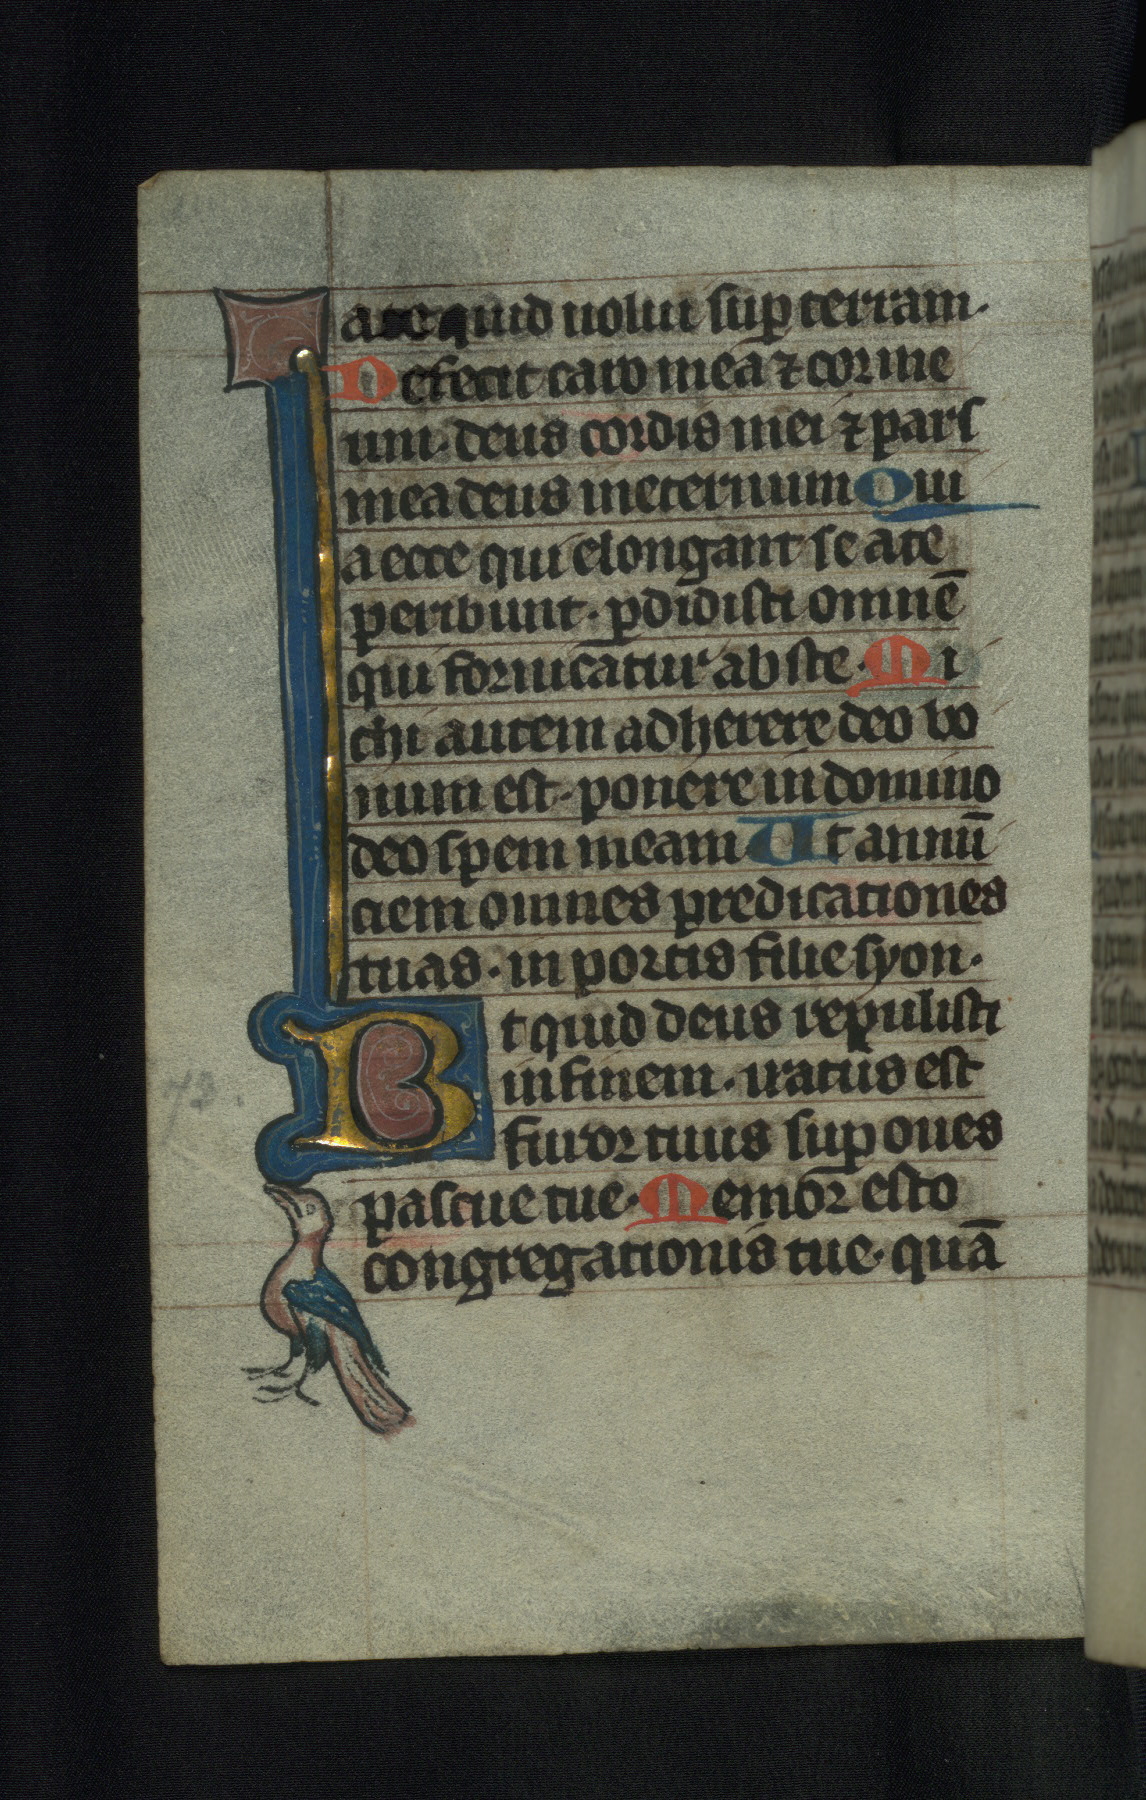 a te quid uolui sup terram·
Defecit caro mea ⁊ cor me
um· deus cordis mei ⁊ pars
mea deus in eternum Qui
a ecce qui elongant se a te
peribunt· pdidisti omnē
qui fornicatur abste· Mi
chi autem adherere deo bo
num est· ponere in domino
deo spem meam Ut annū
ciem omnes predicationes
tuas· in portis filie syon·
Bt quid deus repulisti
in finem· iratus est
furor tuus sup oues
pascue tue· Memor esto
congregationis tue· quā
73.